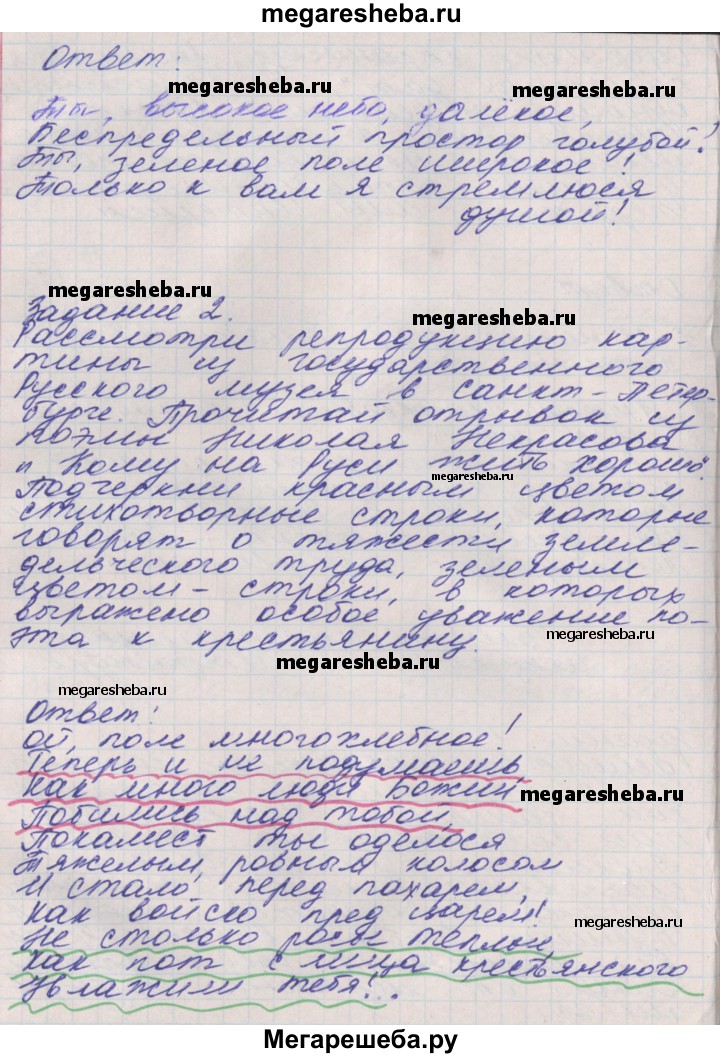 megaresheba.ru
Ответ:
megaresheba.ru
megaresheba.ru
Ты, высокое небо, далёкое,
Беспредельный простор голубой!
Ты, зеленое поле широкое!
Только к вам я стремлюся
душой!
megaresheba.ru
Задание 2.
megaresheba.ru
Рассмотри репродукцию кар-
тины из государственного
Русского музея в Санкт-Петер-
бурге. Прочитай отрывок из
поэмы Николая Некрасова
"Кому на Руси жить хорошо".
megaresheba.ru
Подчеркни красным цветом
стихотворные строки, которые
говорят о тяжести земле-
дельческого труда, зеленым
цветом - строки, в которых
выражено особое уважение по-
эта к крестьянину.
megaresheba.ru
megaresheba.ru
megaresheba.ru
Ответ:
Ой, поле многохлебное!
Теперь и не подумаешь
Как много люди Божии
megaresheba.ru
Побились над тобой,
Покамест ты оделося
Тяжелым, ровным колосом
И стало перед пахарем,
Как войско пред царем!
megaresheba.ru
Не столько росы теплы,
Как пот с лица крестьянского
Увлажили тебя!..
Мегарешеба.ру